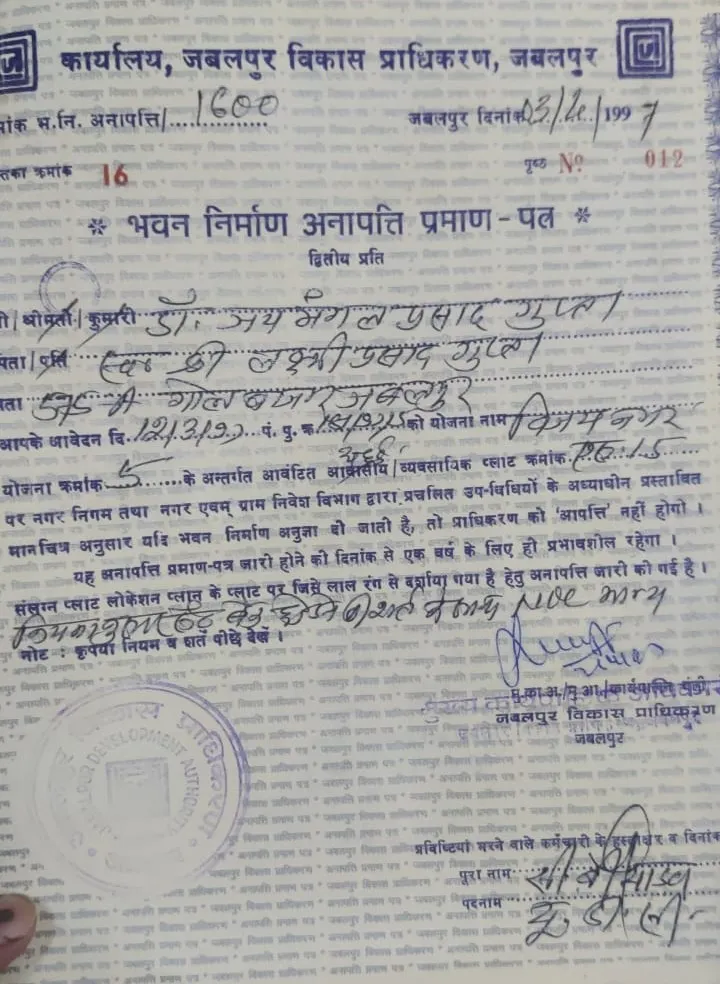 कार्यालय, जबलपुर विकास प्राधिकरण, जबलपुर
मांक भ.नि. अनापत्ति/....1600 जबलपुर दिनांक 3/ /1997
तका क्रमांक 16 पृष्ठ Nº 012
* भवन निर्माण अनापत्ति प्रमाण - पत्र *
द्वितीय प्रति
श्रीमती / कुमारी डॉ. जय मंगल प्रसाद गुप्ता
पिता / पति स्व. श्री लक्ष्मी प्रसाद गुप्ता
पता 575 ए गोल बाजार जबलपुर
आपके आवेदन दि. 12/3/97 पं. पु. क्र. को योजना नाम विजय नगर
योजना क्रमांक 5 के अन्तर्गत आवंटित आवासीय / व्यवसायिक प्लाट क्रमांक
पर नगर निगम तथा नगर एवम् ग्राम निवेश विभाग द्वारा प्रचलित उप-विधियों के अध्याधीन प्रस्तावित
मानचित्र अनुसार यदि भवन निर्माण अनुज्ञा दी जाती है, तो प्राधिकरण को 'आपत्ति' नहीं होगी ।
यह अनापत्ति प्रमाण-पत्र जारी होने की दिनांक से एक वर्ष के लिए ही प्रभावशील रहेगा ।
संलग्न प्लाट लोकेशन प्लान के प्लाट पर जिसे लाल रंग से दर्शाया गया है हेतु अनापत्ति जारी की गई है ।
नियमानुसार के साथ NOC मान्य
नोट : कृपया नियम व शर्तें पीछे देखें ।
मु.का.अ./मु.आ./कार्यपालन यंत्री
जबलपुर विकास प्राधिकरण
जबलपुर
JABALPUR DEVELOPMENT AUTHORITY
प्रविष्टियां भरने वाले कर्मचारी के हस्ताक्षर व दिनांक
पूरा नाम सी बी यादव
पदनाम यू. डी. सी.